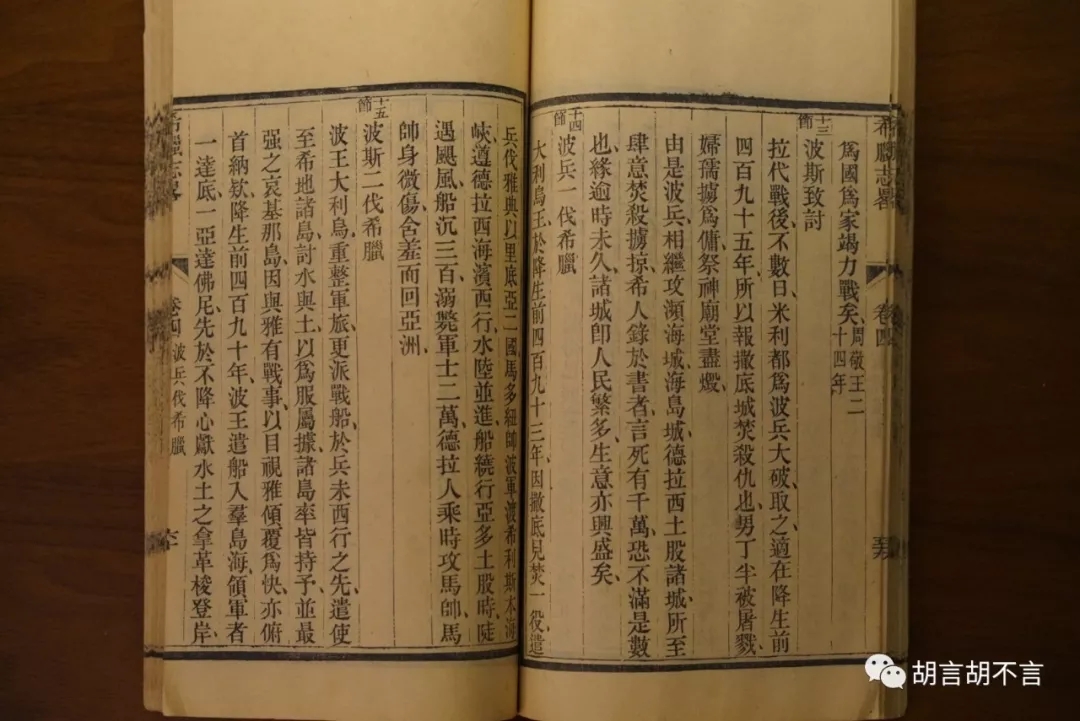 希臘志畧
卷四
至
爲國爲家竭力戰矣、周敬王二
十四年
十三
節
波斯致討
拉代戰後、不數日、米利都爲波兵大破取之、適在降生前
四百九十五年、所以報撒底城焚殺仇也、男丁半被屠戮、
婦孺擄爲傭、祭神廟堂盡燬、
由是波兵、相繼攻瀕海城、海島城、德拉西土股諸城、所至
肆意焚殺擄掠、希人錄於書者、言死有千萬、恐不滿是數
也、緣逾時未久、諸城卽人民繁多、生意亦興盛矣、
十四
節
波兵一伐希臘
大利烏王、於降生前四百九十三年、因撒底見焚一役、遣
兵伐雅典、以里底亞二國、馬多紐帥波軍、渡希利斯本海
峽、遵德拉西海濱西行、水陸並進、船繞行亞多土股時、陡
遇颶風、船沉三百、溺斃軍士二萬、德拉人乘時攻馬帥、馬
帥身微傷、含羞而回亞洲、
十五
節
波斯二伐希臘
波王大利烏、重整軍旅、更派戰船、於兵未西行之先、遣使
至希地諸島、討水與土、以爲服屬據、諸島率皆持予、並最
强之哀基那島、因與雅有戰事、以目視雅傾覆爲快、亦俯
首納欵、降生前四百九十年、波王遣船入羣島海、領軍者
一達底、一亞達佛尼、先於不降心獻水土之拿革梭登岸、
希臘志畧
卷四 波兵伐希臘
六
胡言胡不言